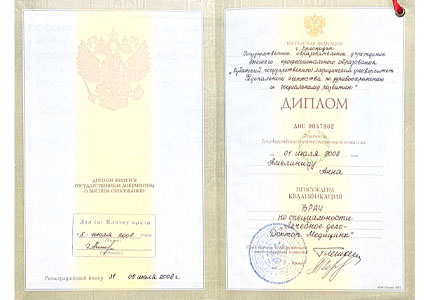 ДИПЛОМ ЯВЛЯЕТСЯ
ГОСУДАРСТВЕННЫМ ДОКУМЕНТОМ
О ВЫСШЕМ ОБРАЗОВАНИИ
Дал(а) Клятву врача
5 июля 2008
Регистрационный номер 31 05 июля 2008 г.
РОССИЙСКАЯ ФЕДЕРАЦИЯ
г. Краснодар
Государственное образовательное учреждение
высшего профессионального образования
"Кубанский государственный медицинский университет
Федерального агентства по здравоохранению
и социальному развитию"
ДИПЛОМ
Решением
Государственной аттестационной комиссии
от 01 июля 2008
Анна
ПРИСУЖДЕНА
КВАЛИФИКАЦИЯ
ВРАЧ
по специальности
"Лечебное дело"